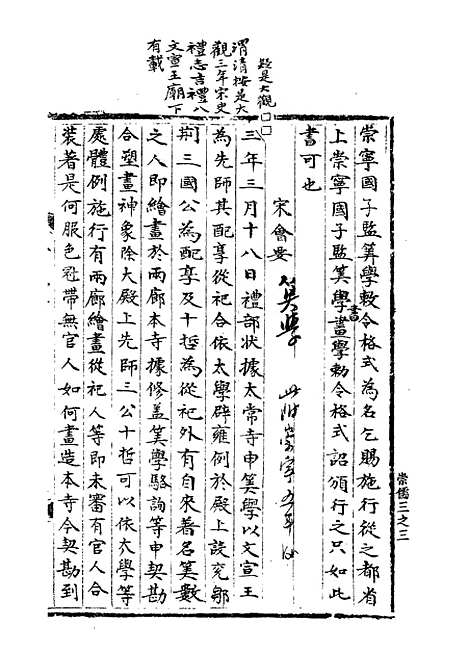 崇寧國子監筭學敕令格式為名乞賜施行從之都省
上崇寧國子監筭學書學畫學勅令格式詔頒行之只如此
書可也
宋會要
筭學
三年三月十八日禮部狀據太常寺申筭學以文宣王
為先師其配享從祀合依太學辟雍例於殿上設兗鄒
荆三國公為配享及十哲為從祀外有自來著名筭數
之人即繪畫於兩廊本寺據修蓋筭學駱詢等申契勘
合塑畫神象除大殿上先師三公十哲可以依太學等
處體例施行有兩廊繪畫從祀人等即未審有官人合
裝著是何服色冠帶無官人如何畫造本寺今契勘到
疑是大觀□□
渭清按是大
觀三年宋史
禮志吉禮八
文宣王廟下
有載
崇儒三之三